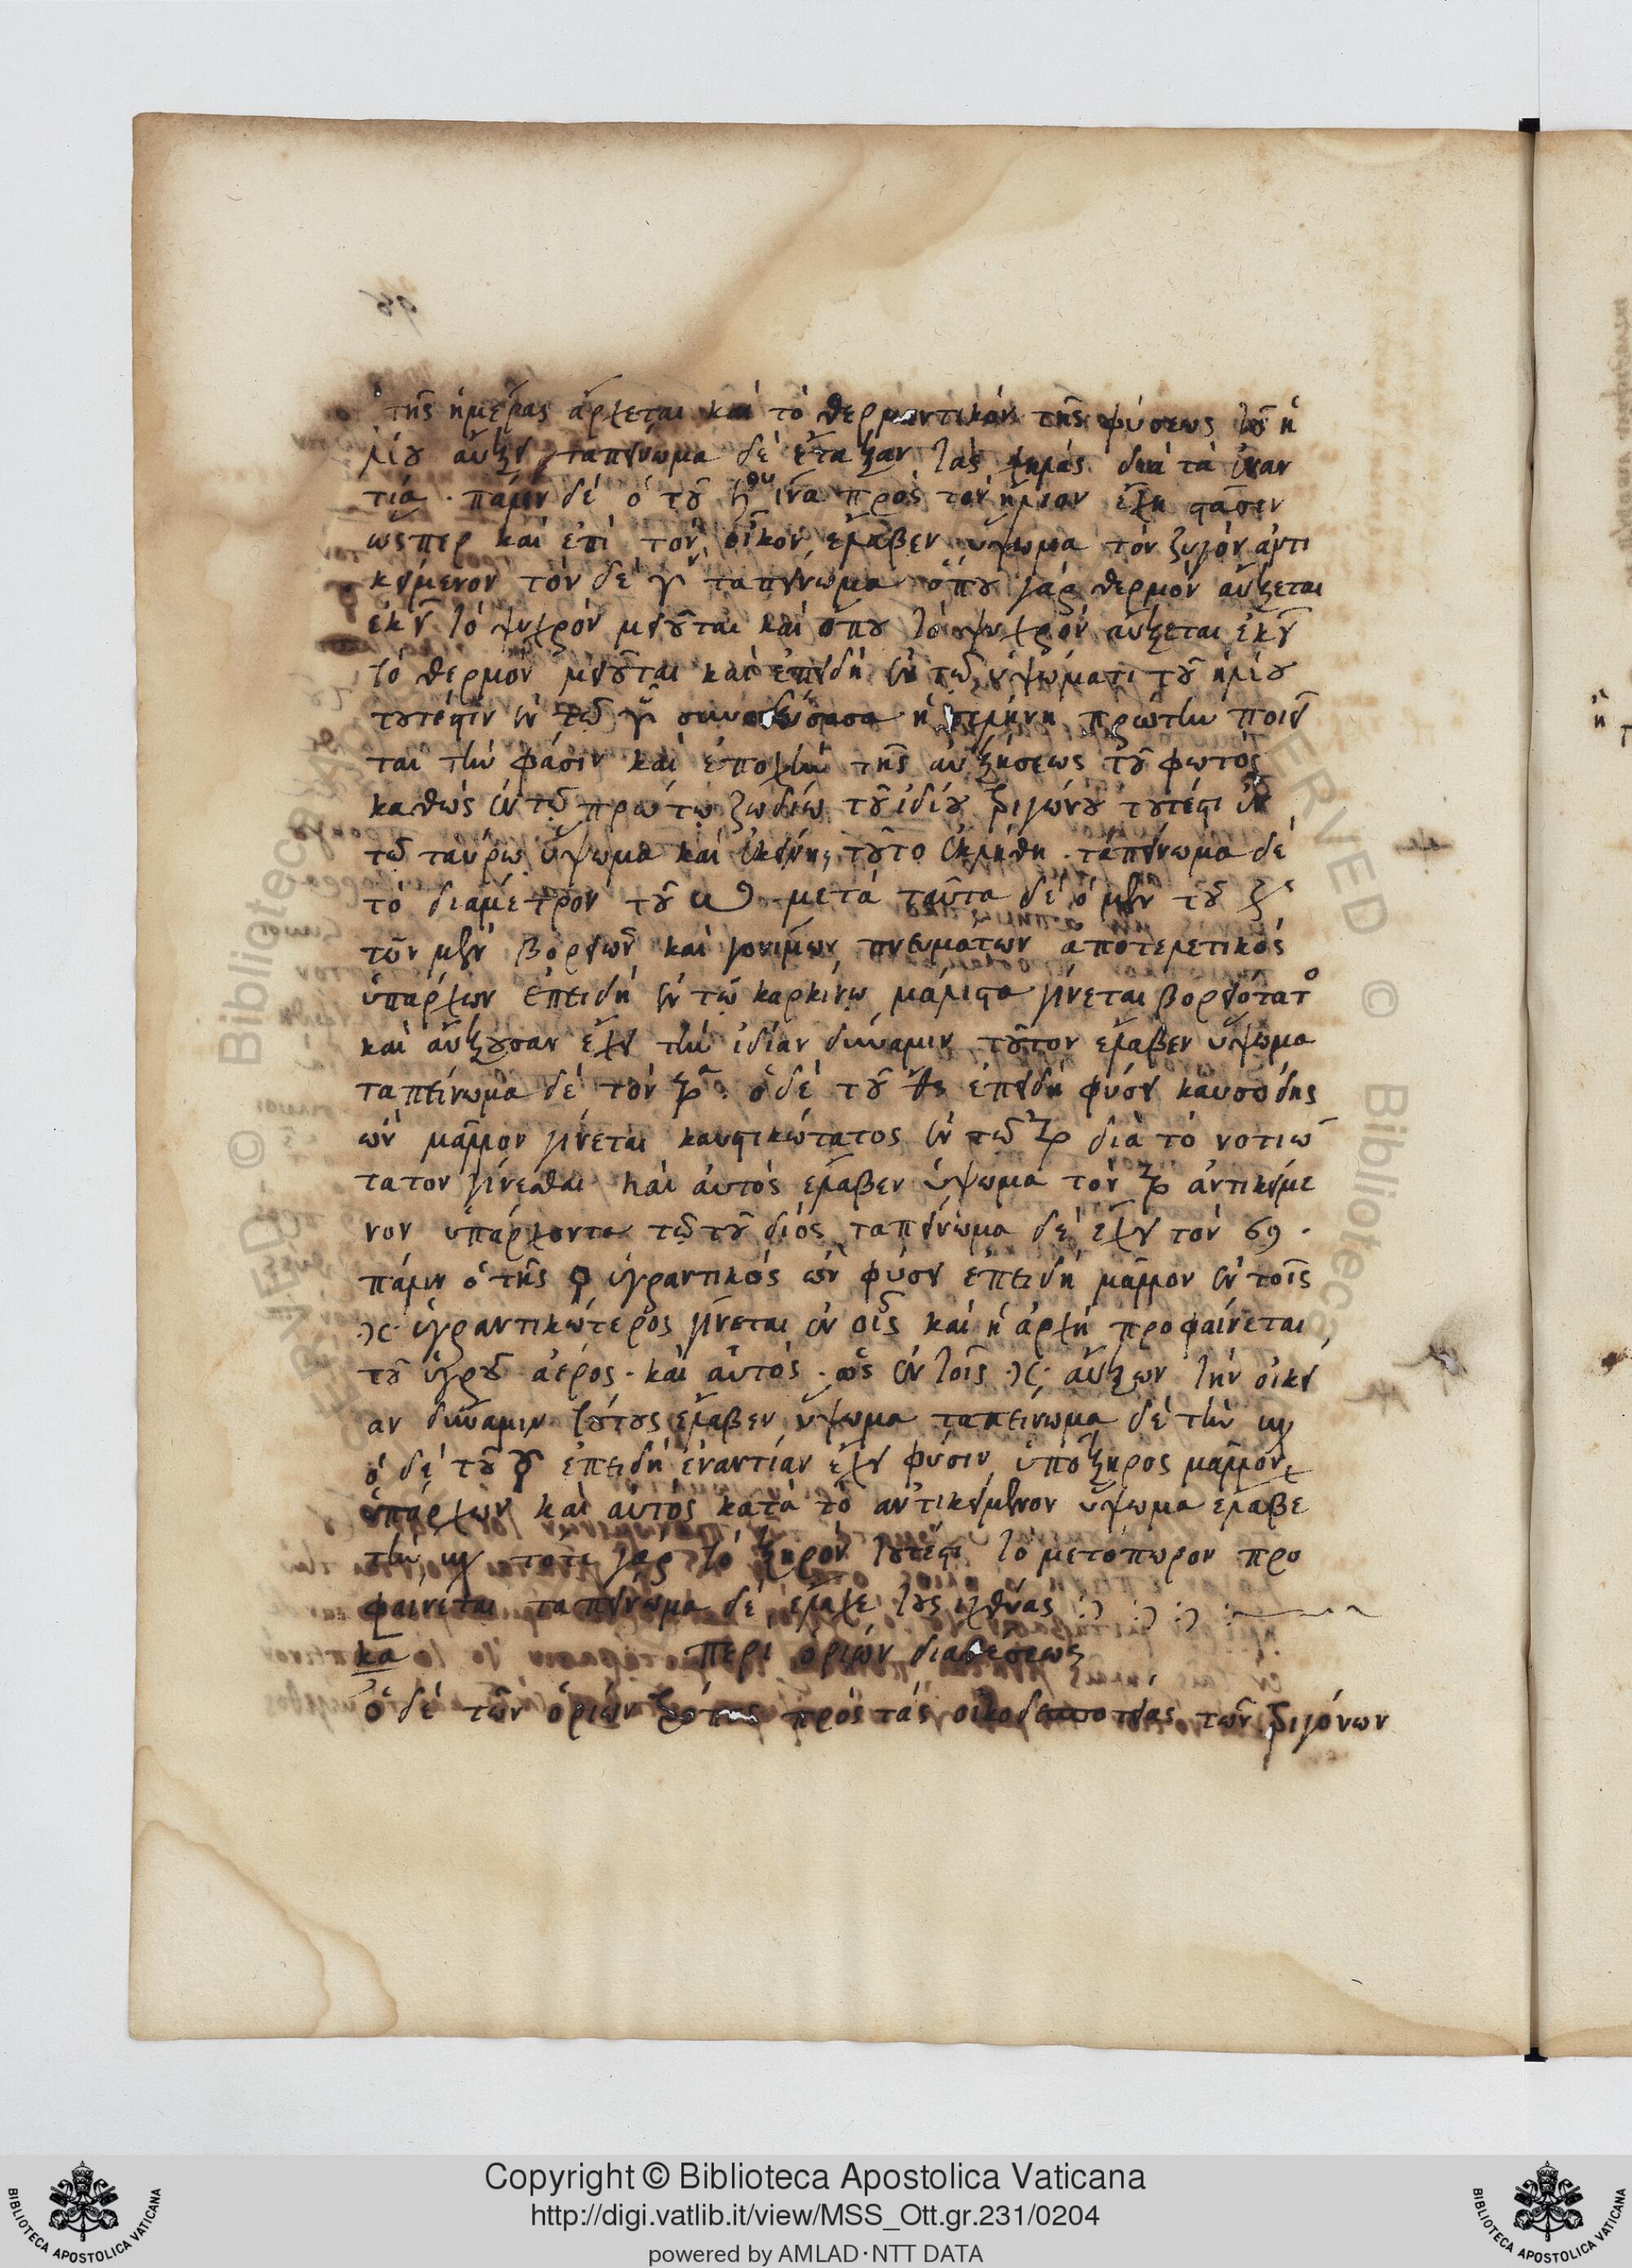 τῆς ἡμέρας ἄρχεται καὶ τὸ θερμαντικὸν τῆς φύσεως τοῦ ἡ
λίου αὔξειν ταπείνωμα δὲ ἔταξαν τὰς χηλάς διὰ τὰ ἐναν
τία · πάλιν δὲ ὁ τοῦ ♄ου ἵνα πρὸς τὸν ἥλιον ἔχῃ στάσιν
ὥσπερ καὶ ἐπὶ τὸν οἶκον, ἔλαβεν ὕψωμα τὸν ζυγὸν ἀντι
κείμενον τὸν δὲ ♈ ταπείνωμα ὅπου γὰρ θερμὸν αὔξεται
ἐκεῖ τὸ ψυχρὸν μειοῦται καὶ ὅπου τὸ ψυχρὸν αὔξεται ἐκεῖ
τὸ θερμὸν μειοῦται καὶ ἐπειδὴ ἐν τῷ ὑψώματι τοῦ ἡλίου
τουτέστιν ἐν τῷ ♈ συνοδεύσασα ἡ σελήνη πρώτην ποιεῖ
ται τὴν φάσιν καὶ ἐποχὴν τῆς αὐξήσεως τοῦ φωτός
καθὼς ἐν τῷ πρώτῳ ζωδίῳ τοῦ ἰδίου τριγώνου τουτέστι ἐν
τῷ ταύρῳ ὕψωμα καὶ ἐκείνης τοῦτο ἐκλήθη · ταπείνωμα δὲ
τὸ διάμετρον τοῦ ♏ · μετὰ ταῦτα δὲ ὁ μὲν τοῦ ♃ς
τῶν μὲν βορείων καὶ γονίμων πνευμάτων ἀποτελετικός
ὑπάρχων ἐπειδὴ ἐν τῷ καρκίνῳ μάλιστα γίνεται βορειότατο
καὶ αὔξουσαν ἔχει τὴν ἰδίαν δύναμιν τοῦτον ἔλαβεν ὕψωμα
ταπείνωμα δὲ τὸν ♑ · ὁ δὲ τοῦ ♂ ἐπειδὴ φύσει καυσώδης
ὢν μᾶλλον γίνεται καυστικώτατος ἐν τῷ ♑ διὰ τὸ νοτιώ
τατον γίνεσθαι καὶ αὐτὸς ἔλαβεν ὕψωμα τὸν ♑ ἀντικείμε
νον ὑπάρχοντα τῷ τοῦ διός ταπείνωμα δὲ ἔχει τὸν ♋ ·
πάλιν ὁ τῆς ♀ ὑγραντικὸς ὢν φύσει ἐπειδὴ μᾶλλον ἐν τοῖς
♓ · ὑγραντικώτερος γίνεται ἐν οἷς καὶ ἡ ἀρχὴ προφαίνεται
τοῦ ὑγροῦ ἀέρος · καὶ αὐτὸς · ὡς ἐν τοῖς ♓ · αὔξων τὴν οἰκεί
αν δύναμιν τούτους ἔλαβεν ὕψωμα ταπείνωμα δὲ τὴν ♍
ὁ δὲ τοῦ ☿ ἐπειδὴ ἐναντίαν ἔχει φύσιν ὑπόξηρος μᾶλλον
ὑπάρχων καὶ αὐτὸς κατὰ τὸ ἀντικείμενον ὕψωμα ἔλαβε
τὴν ♍ τότε γὰρ τὸ ξηρὸν τουτέστι τὸ μετόπωρον προ
φαίνεται ταπείνωμα δὲ ἔλαχε τοὺς ἰχθύας
κα περὶ ὁρίων διαθέσεως
ὁ δὲ τῶν ὁρίων πρὸς τὰς οἰκοδεσποτείας τῶν τριγόνων